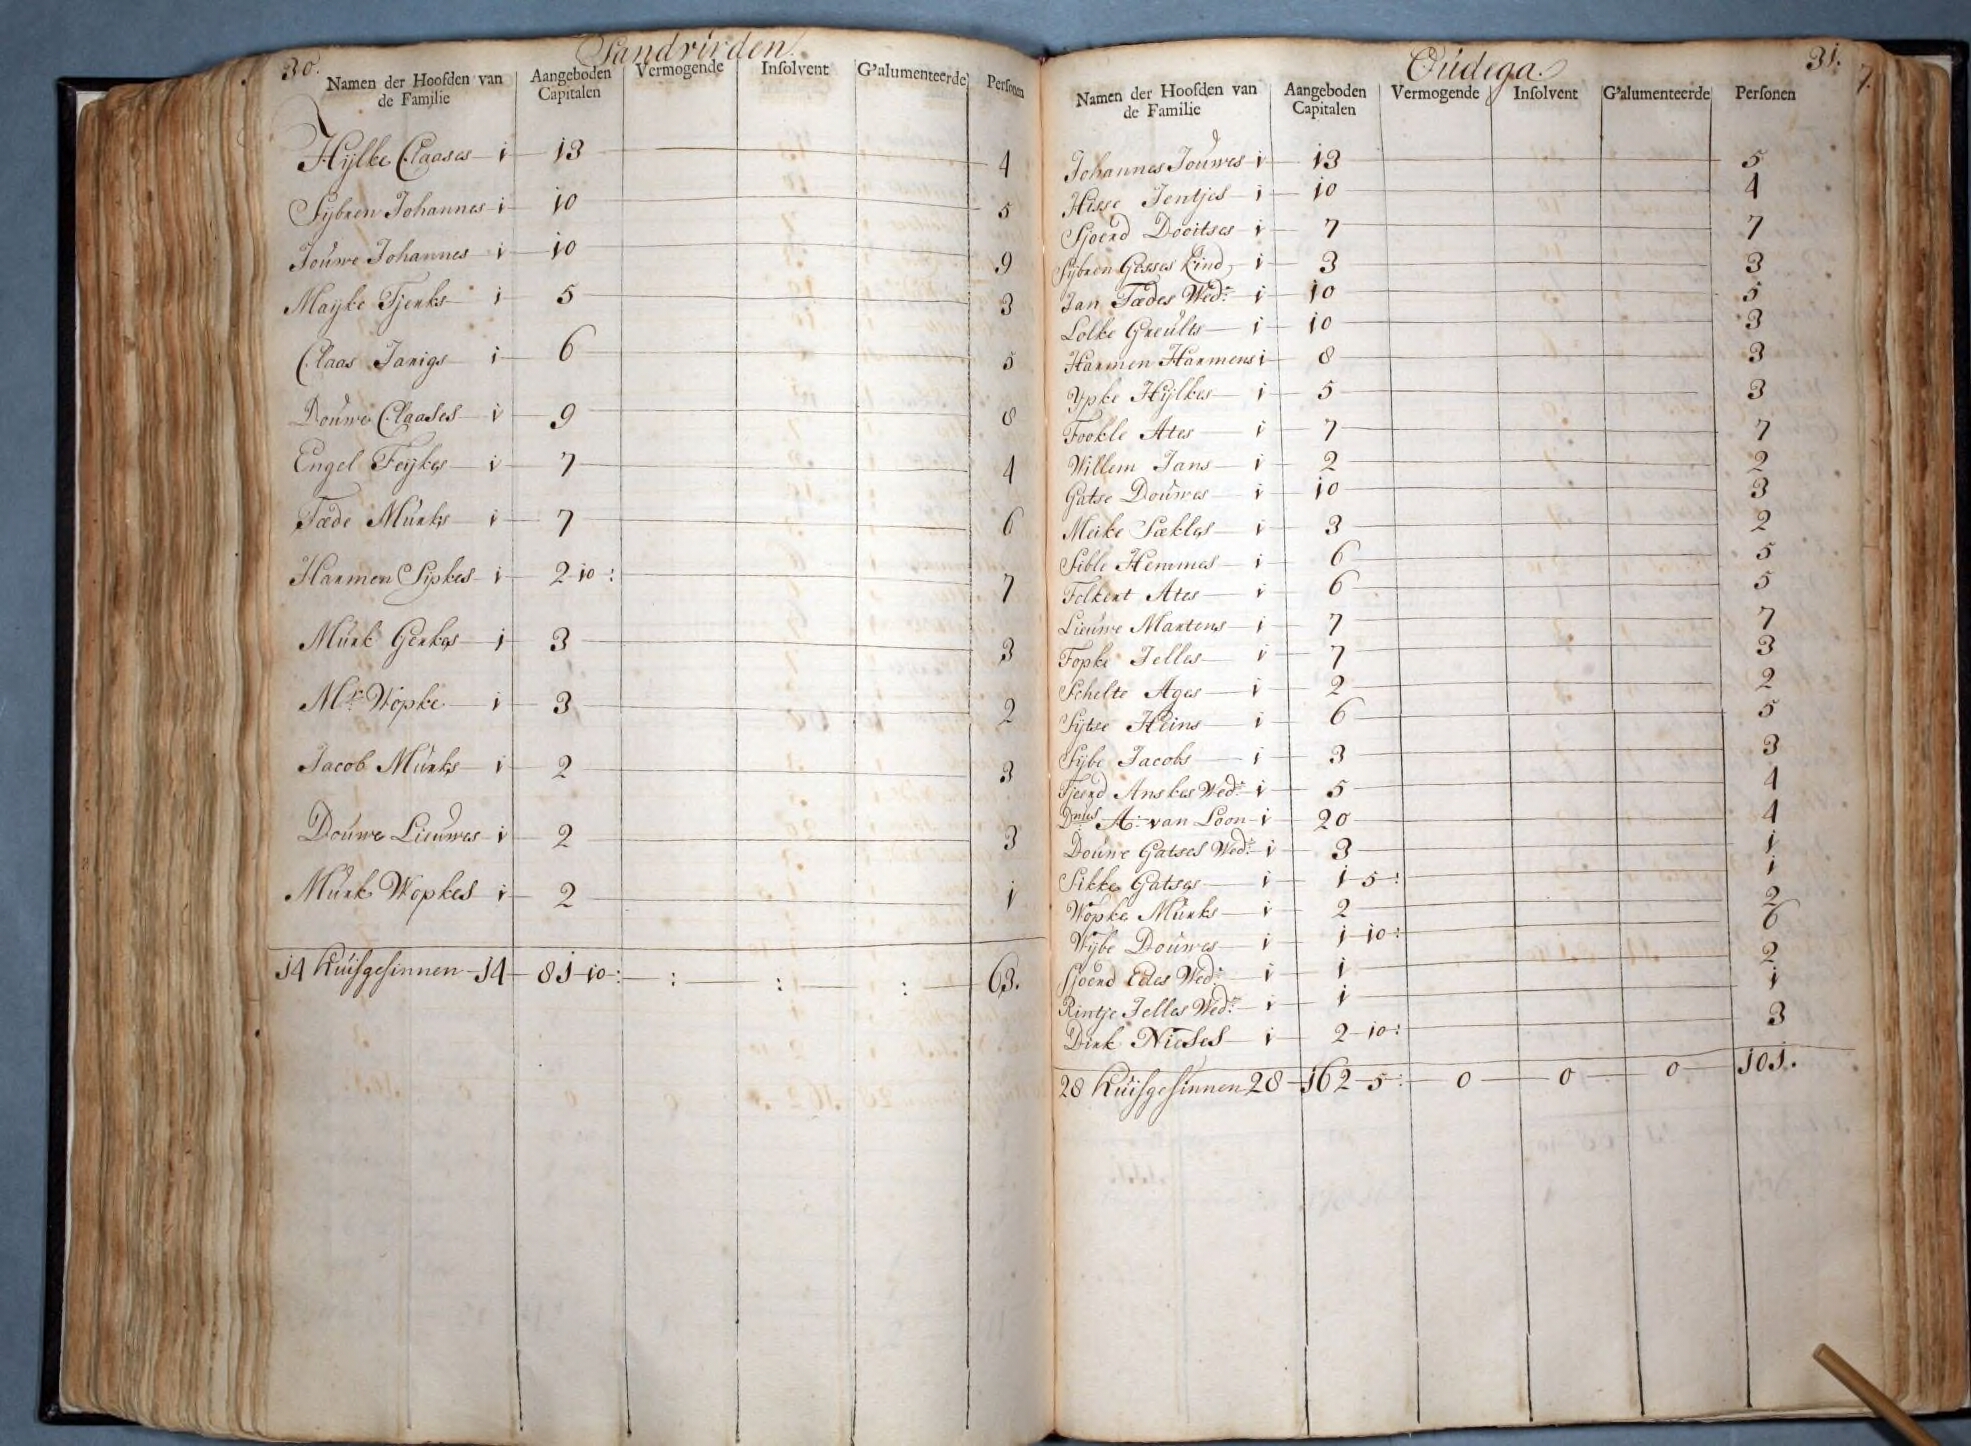 30.
Sandvirden.
Namen der Hoofden van de Familie Aangeboden Capitalen Vermogende Insolvent G'alumenteerde Personen
Hylke Claases 1 13 4
Sybren Johannes 1 10 5
Jouwe Johannes 1 10 9
Mayke Tjerks 1 5 3
Claas Jarigs 1 6 5
Douwe Claases 1 9 8
Engel Feykes 1 7 4
Fæde Murks 1 7 6
Harmen Sipkes 1 2-10: 7
Murk Gerkes 1 3 3
Mr. Wopke 1 3 2
Jacob Murks 1 2 3
Douwe Lieuwes 1 2 3
Murk Wopkes 1 2 1
14 huisgesinnen 14 81-10: : : : 63.
Oudega.
31.
7.
Namen der Hoofden van de Familie Aangeboden Capitalen Vermogende Insolvent G'alumenteerde Personen
Johannes Jouwes 1 13 5
Hisse Jentjes 1 10 4
Sjoerd Dooitses 1 7 7
Sybren Gesses kind 1 3 3
Jan Fædes Wed: 1 10 5
Lolke Greults 1 10 3
Harmen Harmens 1 8 3
Ypke Hylkes 1 5 3
Fookle Ates 1 7 7
Willem Jans 1 2 2
Gatse Douwes 1 10 3
Meike Sækles 1 3 2
Sible Hemmes 1 6 5
Folkert Ates 1 6 5
Lieuwe Martens 1 7 7
Fopke Jelles 1 7 3
Schelte Ages 1 2 2
Sytse Heins 1 6 5
Sybe Jacobs 1 3 3
Tjeerd Anskes Wed: 1 5 4
A: van Loon 1 20 4
Douwe Gatses Wed: 1 3 1
Sikke Gatses 1 1-5: 1
Wopke Murks 1 2 2
Wybe Douwes 1 1-10: 6
Sjoerd Edes Wed: 1 1 2
Rintje Jelles Wed: 1 1 1
Dirk Nieses 1 2-10: 3
28 huisgesinnen 28 162-5: 0 0 0 101.